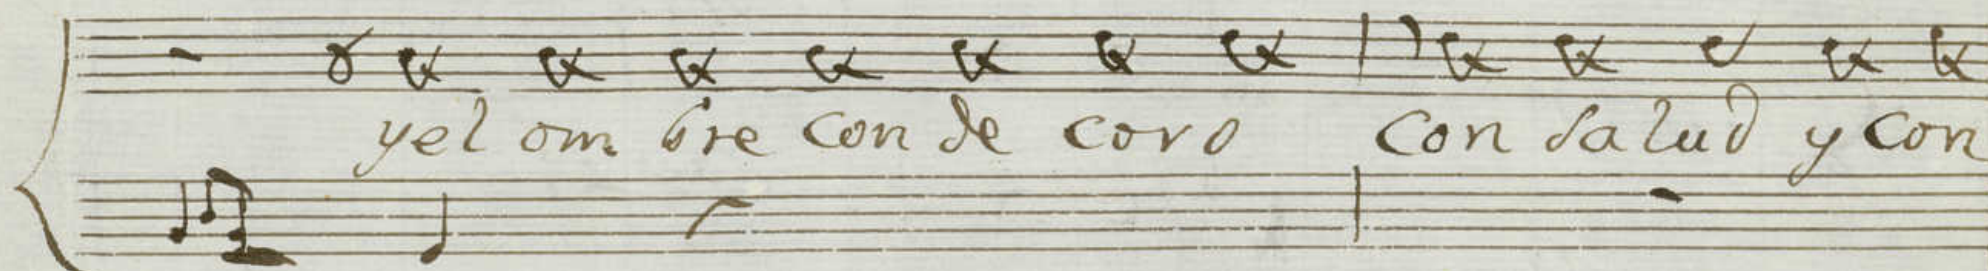 yel om bre con de coro con salud y con